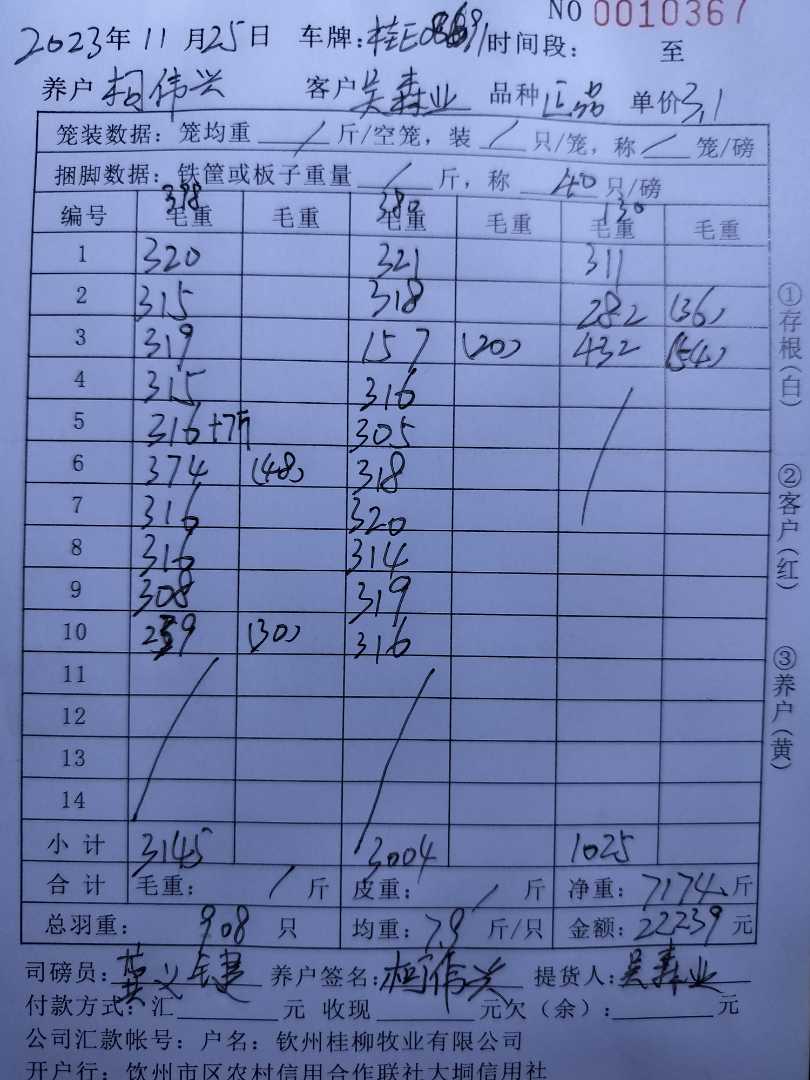 NO 0010367
2023年11月25日 车牌: 时间段: 至
养户 柯伟兴 客户 吴森业 品种 正品 单价 3.1
笼装数据: 笼均重 / 斤/空笼, 装 / 只/笼, 称 / 笼/磅
捆脚数据: 铁筐或板子重量 / 斤, 称 40 只/磅
398 380 130
编号 毛重 毛重 毛重 毛重 毛重 毛重
1 320 321 311
2 315 318 282 (36)
3 319 157 (20) 432 (54)
4 315 316 /
5 316+7斤 305
6 374 (48) 318
7 316 320
8 316 314
9 308 319
10 259 (30) 316
11 / /
12
13
14
小计 3145 3004 1025
合计 毛重: / 斤 皮重: / 斤 净重: 7174 斤
总羽重: 908 只 均重: 7.9 斤/只 金额: 22239 元
司磅员: 养户签名: 柯伟兴 提货人: 吴森业
付款方式: 汇 元 收现 元欠(余): 元
公司汇款帐号: 户名: 钦州桂柳牧业有限公司
开户行: 钦州市区农村信用合作联社大垌信用社
①存根(白)
②客户(红)
③养户(黄)